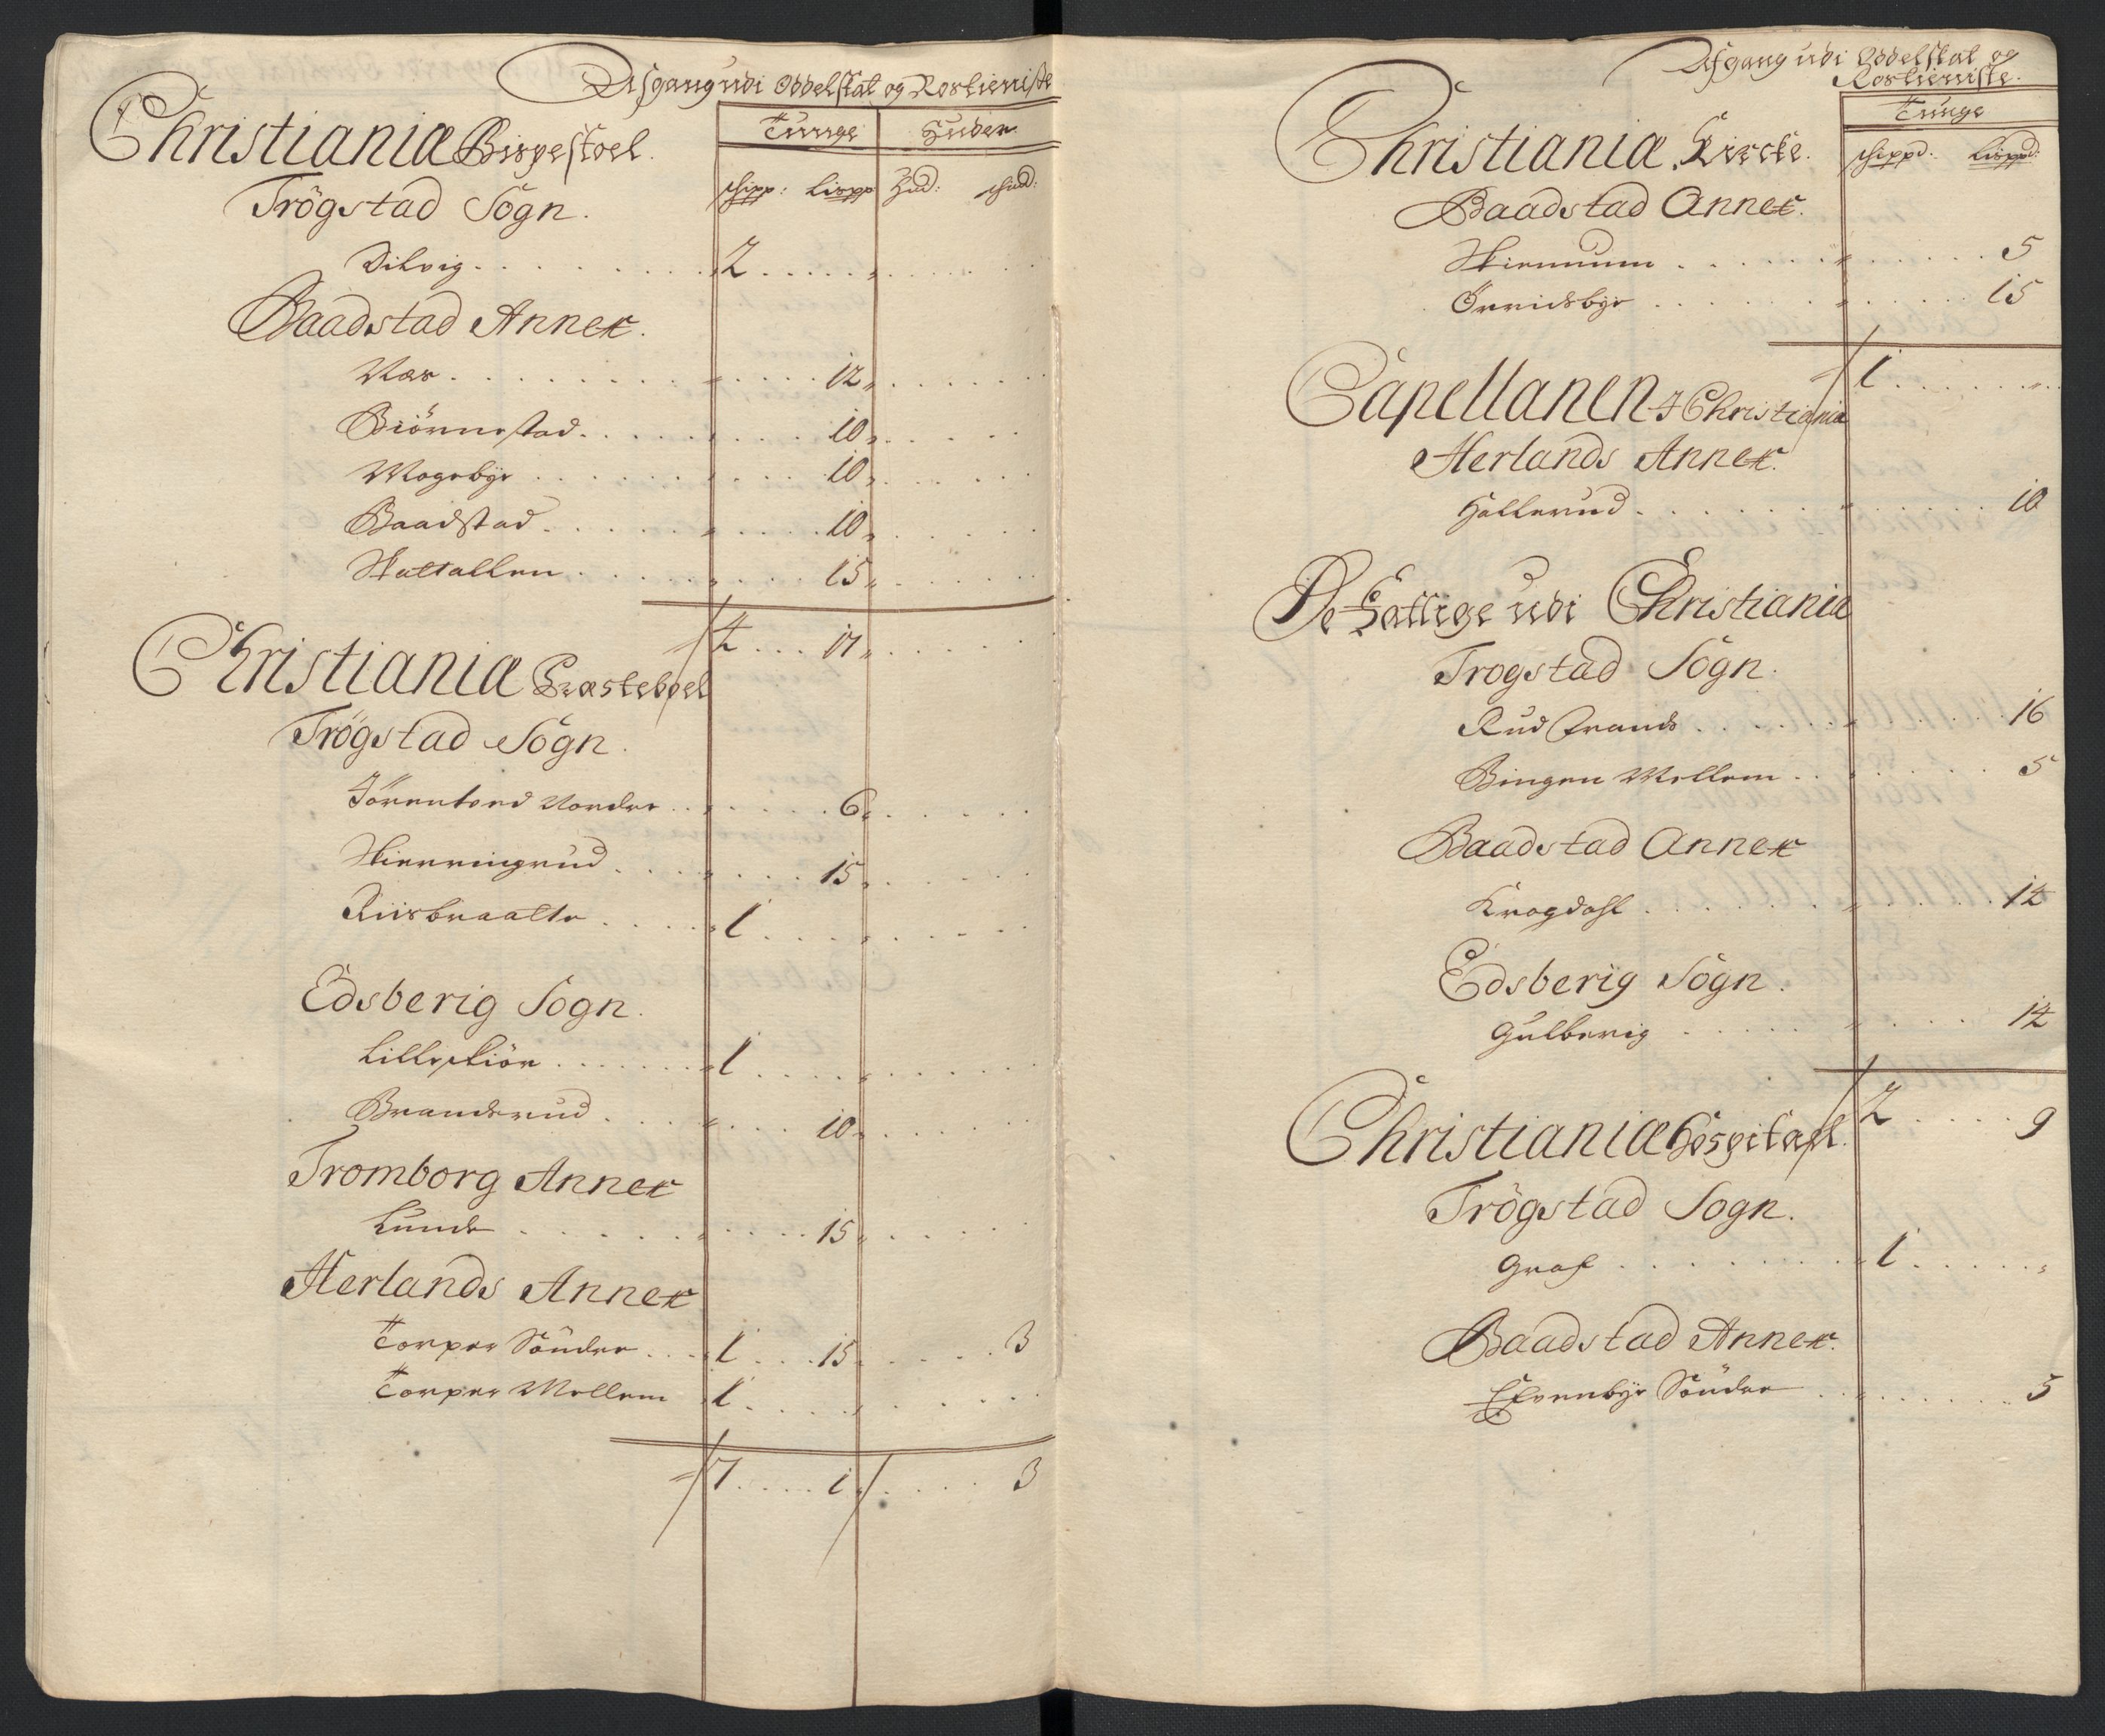 Afgang udi Oddelskat og Rostieniste
Tunge Huder
Christianiæ Bispestoel.
schipp: Lispp Hud: schind:
Trögstad Sogn.
Dilvig . . . 2 . . . "
Baadstad Annex.
Næs . . . " . . . 12 "
Biörnestad . . . " . . . 10 "
Mogebye . . . " . . . 10 "
Baadstad . . . " . . . 10 "
Skattallen . . . " . . . 15 "
4 . . . 17 "
Christianiæ Præsteboel
Trögstad Sogn.
Jörentved Nordre . . . " . . . 6 "
Skierringrud . . . " . . . 15 "
Riisbraatte . . . " 1 . . . "
Edsberig Sogn.
Lilleskiör . . . " 1 . . . "
Branderud . . . " . . . 10 "
Tromborg Annex
Lunde . . . " . . . 15 "
Herlands Annex
Torper Sönder . . . 1 . . . 15 . . . 3
Torper Mellem 1 . . . "
7 . . . 1 . . . 3
Afgang udi Oddelskat og
Rostieniste.
Tunge
Christianiæ Kircke.
schippd: Lisppd:
Baadstad Annex.
Skiennum . . . " . . . 5
Örridsbye . . . " . . . 15
1 . . . "
Capellanen I Christiania
Herlands Annex.
Hallerud . . . " . . . 10
De Fattige udi Christiania
Trogstad Sogn.
Rud Frands . . . " . . . 16
Bingen Mellem . . . " . . . 5
Baadstad Annex
Krogdahl . . . " . . . 14
Edsberig Sogn.
Gulberig . . . " . . . 14
2 . . . 9
Christianiæ Hospitahl.
Trögstad Sogn.
Graf . . . " 1 . . . "
Baadstad Annex.
Efvenbye Sönder . . . " . . . 5